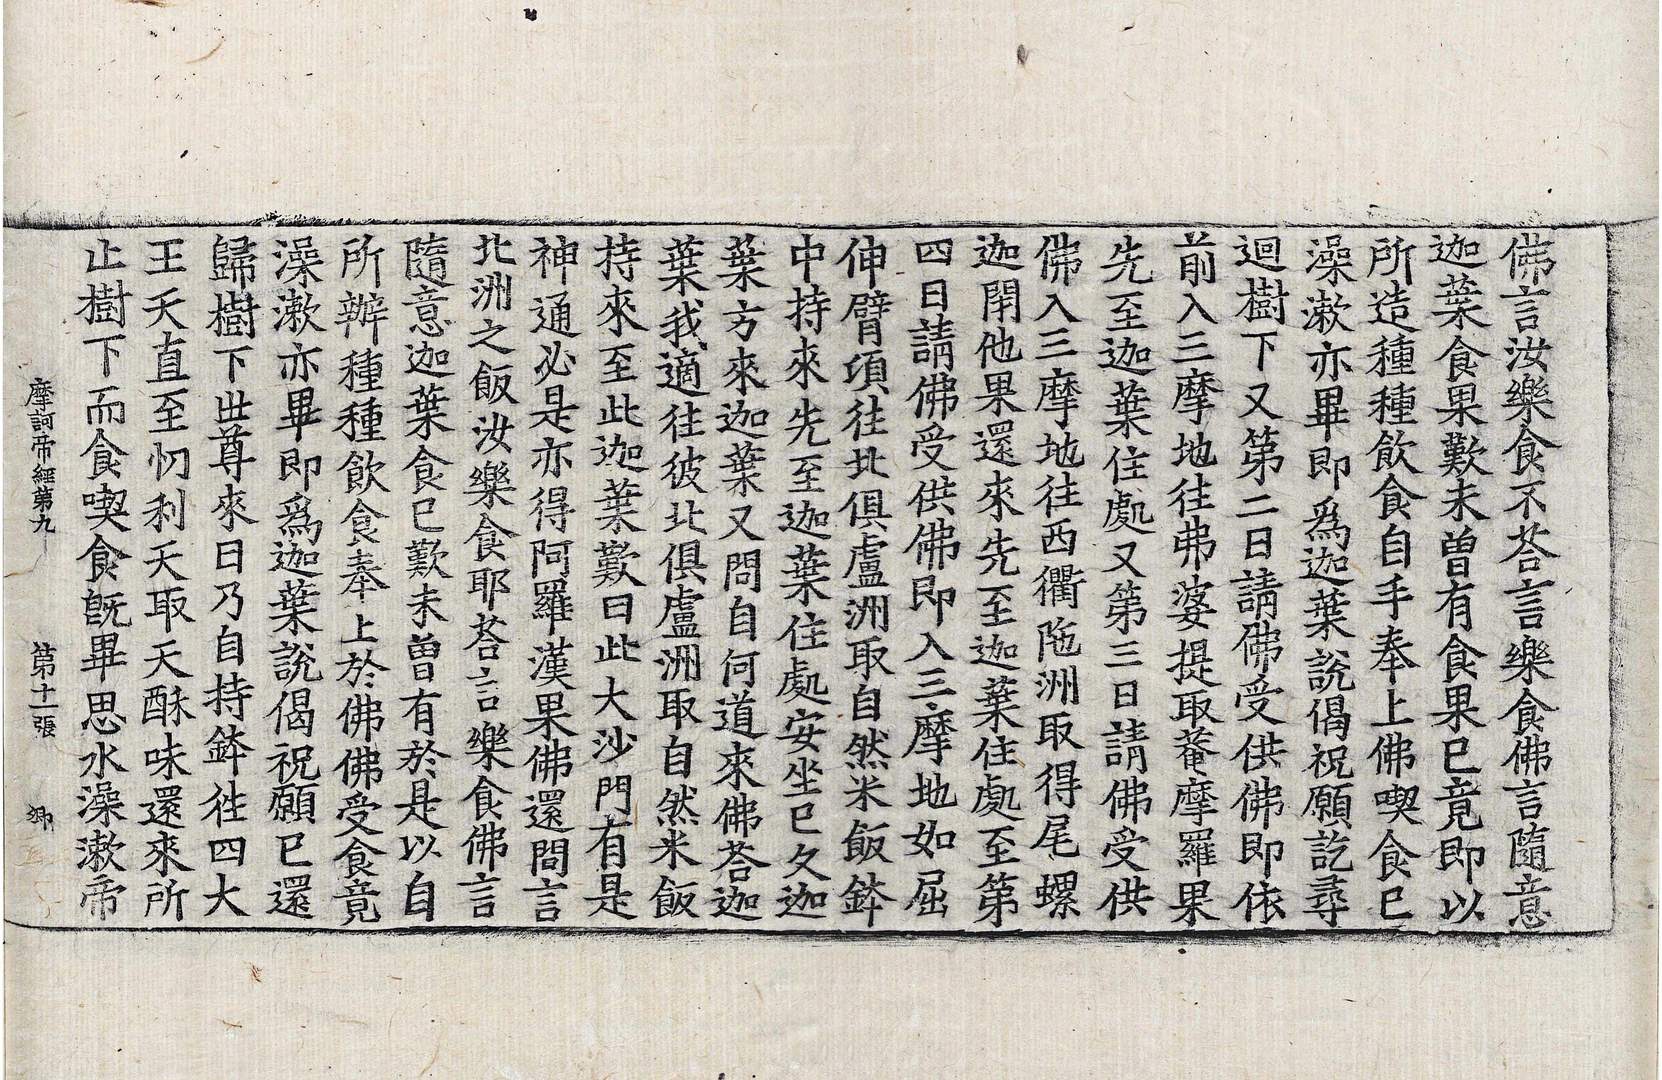 佛言汝樂食不荅言樂食佛言隨意
迦葉食果歎未曽有食果已竟即以
所造種種飲食自手奉上佛喫食已
澡漱亦畢即爲迦葉說偈祝願訖尋
迴樹下又第二日請佛受供佛即依
前入三摩地往弗婆提取菴摩羅果
先至迦葉住處又第三日請佛受供
佛入三摩地往西衢陁洲取得尾螺
迦閇他果還來先至迦葉住處至第
四日請佛受供佛即入三摩地如屈
伸臂頃往北俱盧洲取自然米飯鉢
中持來先至迦葉住處安坐已久迦
葉方來迦葉又問自何道來佛荅迦
葉我適往彼北俱盧洲取自然米飯
持來至此迦葉歎曰此大沙門有是
神通必是亦得阿羅漢果佛還問言
北洲之飯汝樂食耶荅言樂食佛言
隨意迦葉食已歎未曽有於是以自
所辦種種飲食奉上於佛佛受食竟
澡漱亦畢即爲迦葉說偈祝願已還
歸樹下世尊來日乃自持鉢往四大
王天直至忉利天取天酥味還來所
止樹下而食喫食旣畢思水澡漱帝
摩訶帝經第九 第十一張 卿